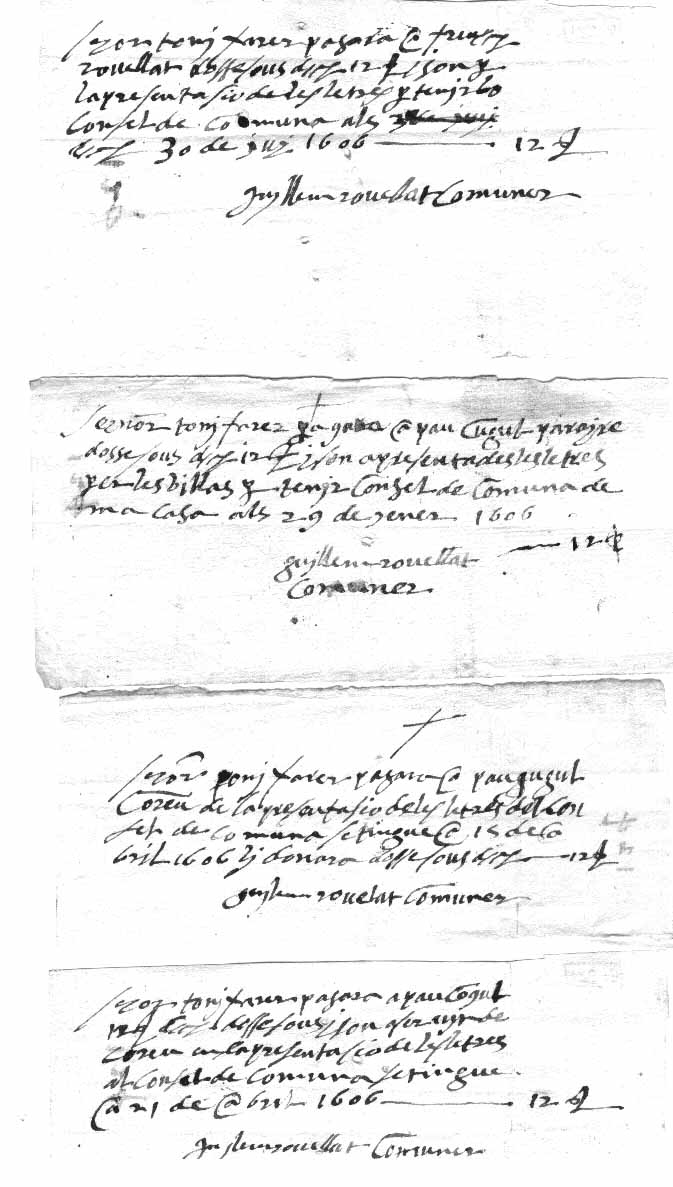 senor toni farer pagara a
rovellat dosse sous 12 ȷ son p
la presentasio de les letres p tenir lo
consel de comuna als
30 de juj 1606 — 12
guyllem rovellat Comuner
senor toni farer pagara a pau Cugul parayre
dosse sous 12 ȷ son a presentades les letres
per les billas p tenir Consel de Comuna de
ma casa als 29 de jener 1606
— 12
guillem rovellat
Comuner
senor toni farer pagara a pau gugul
Coreu de la presentasio de les letres del Con
sel de comuna se tingue a 15 de a
bril 1606 li donara dosse sous — 12
guyllem rovelat Comuner
senor toni farer pagara a pau Cogul
dosse sous ȷ son per
coreu en la presentasio de les letres
al Consel de Comuna se tingue
a 21 de abril 1606 — 12
guyllem rovellat Comuner